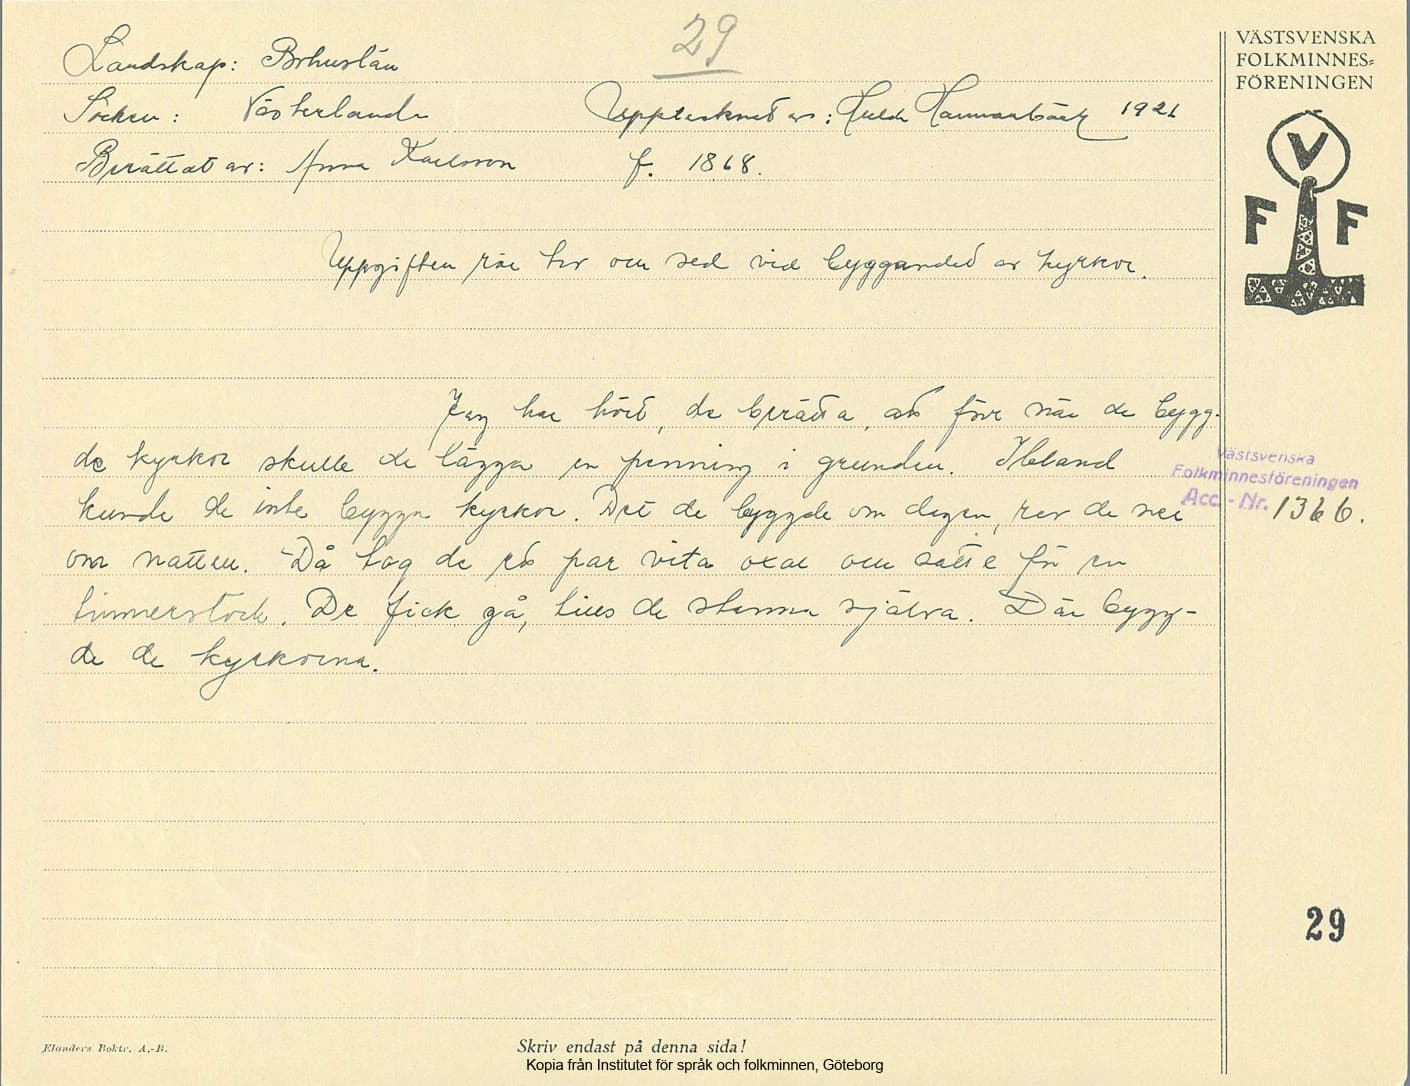 29
VÄSTSVENSKA
FOLKMINNES=
FÖRENINGEN
V
F F
Landskap: Bohuslän
Socken: Västerlanda
Upptecknat av: Huld Hammarbäck 1921
Berättat av: Anna Karlsson f. 1868.
Uppgiften rör tro och sed vid byggandet av kyrkor.
Jag har hört, de berätta, att förr när de bygg-
de kyrkor skulle de lägga en penning i grunden. Ibland
kunde de inte bygga kyrkor. Det de byggde om dagen, rev de ner
om natten. Då tog de ett par vita oxar och satte för en
timmerstock. De fick gå, tills de stanna själva. Där bygg-
de de kyrkorna.
Västsvenska
Folkminnesföreningen
Acc.-Nr. 1366.
29
Elanders Boktr. A.-B.
Skriv endast på denna sida!
Kopia från Institutet för språk och folkminnen, Göteborg